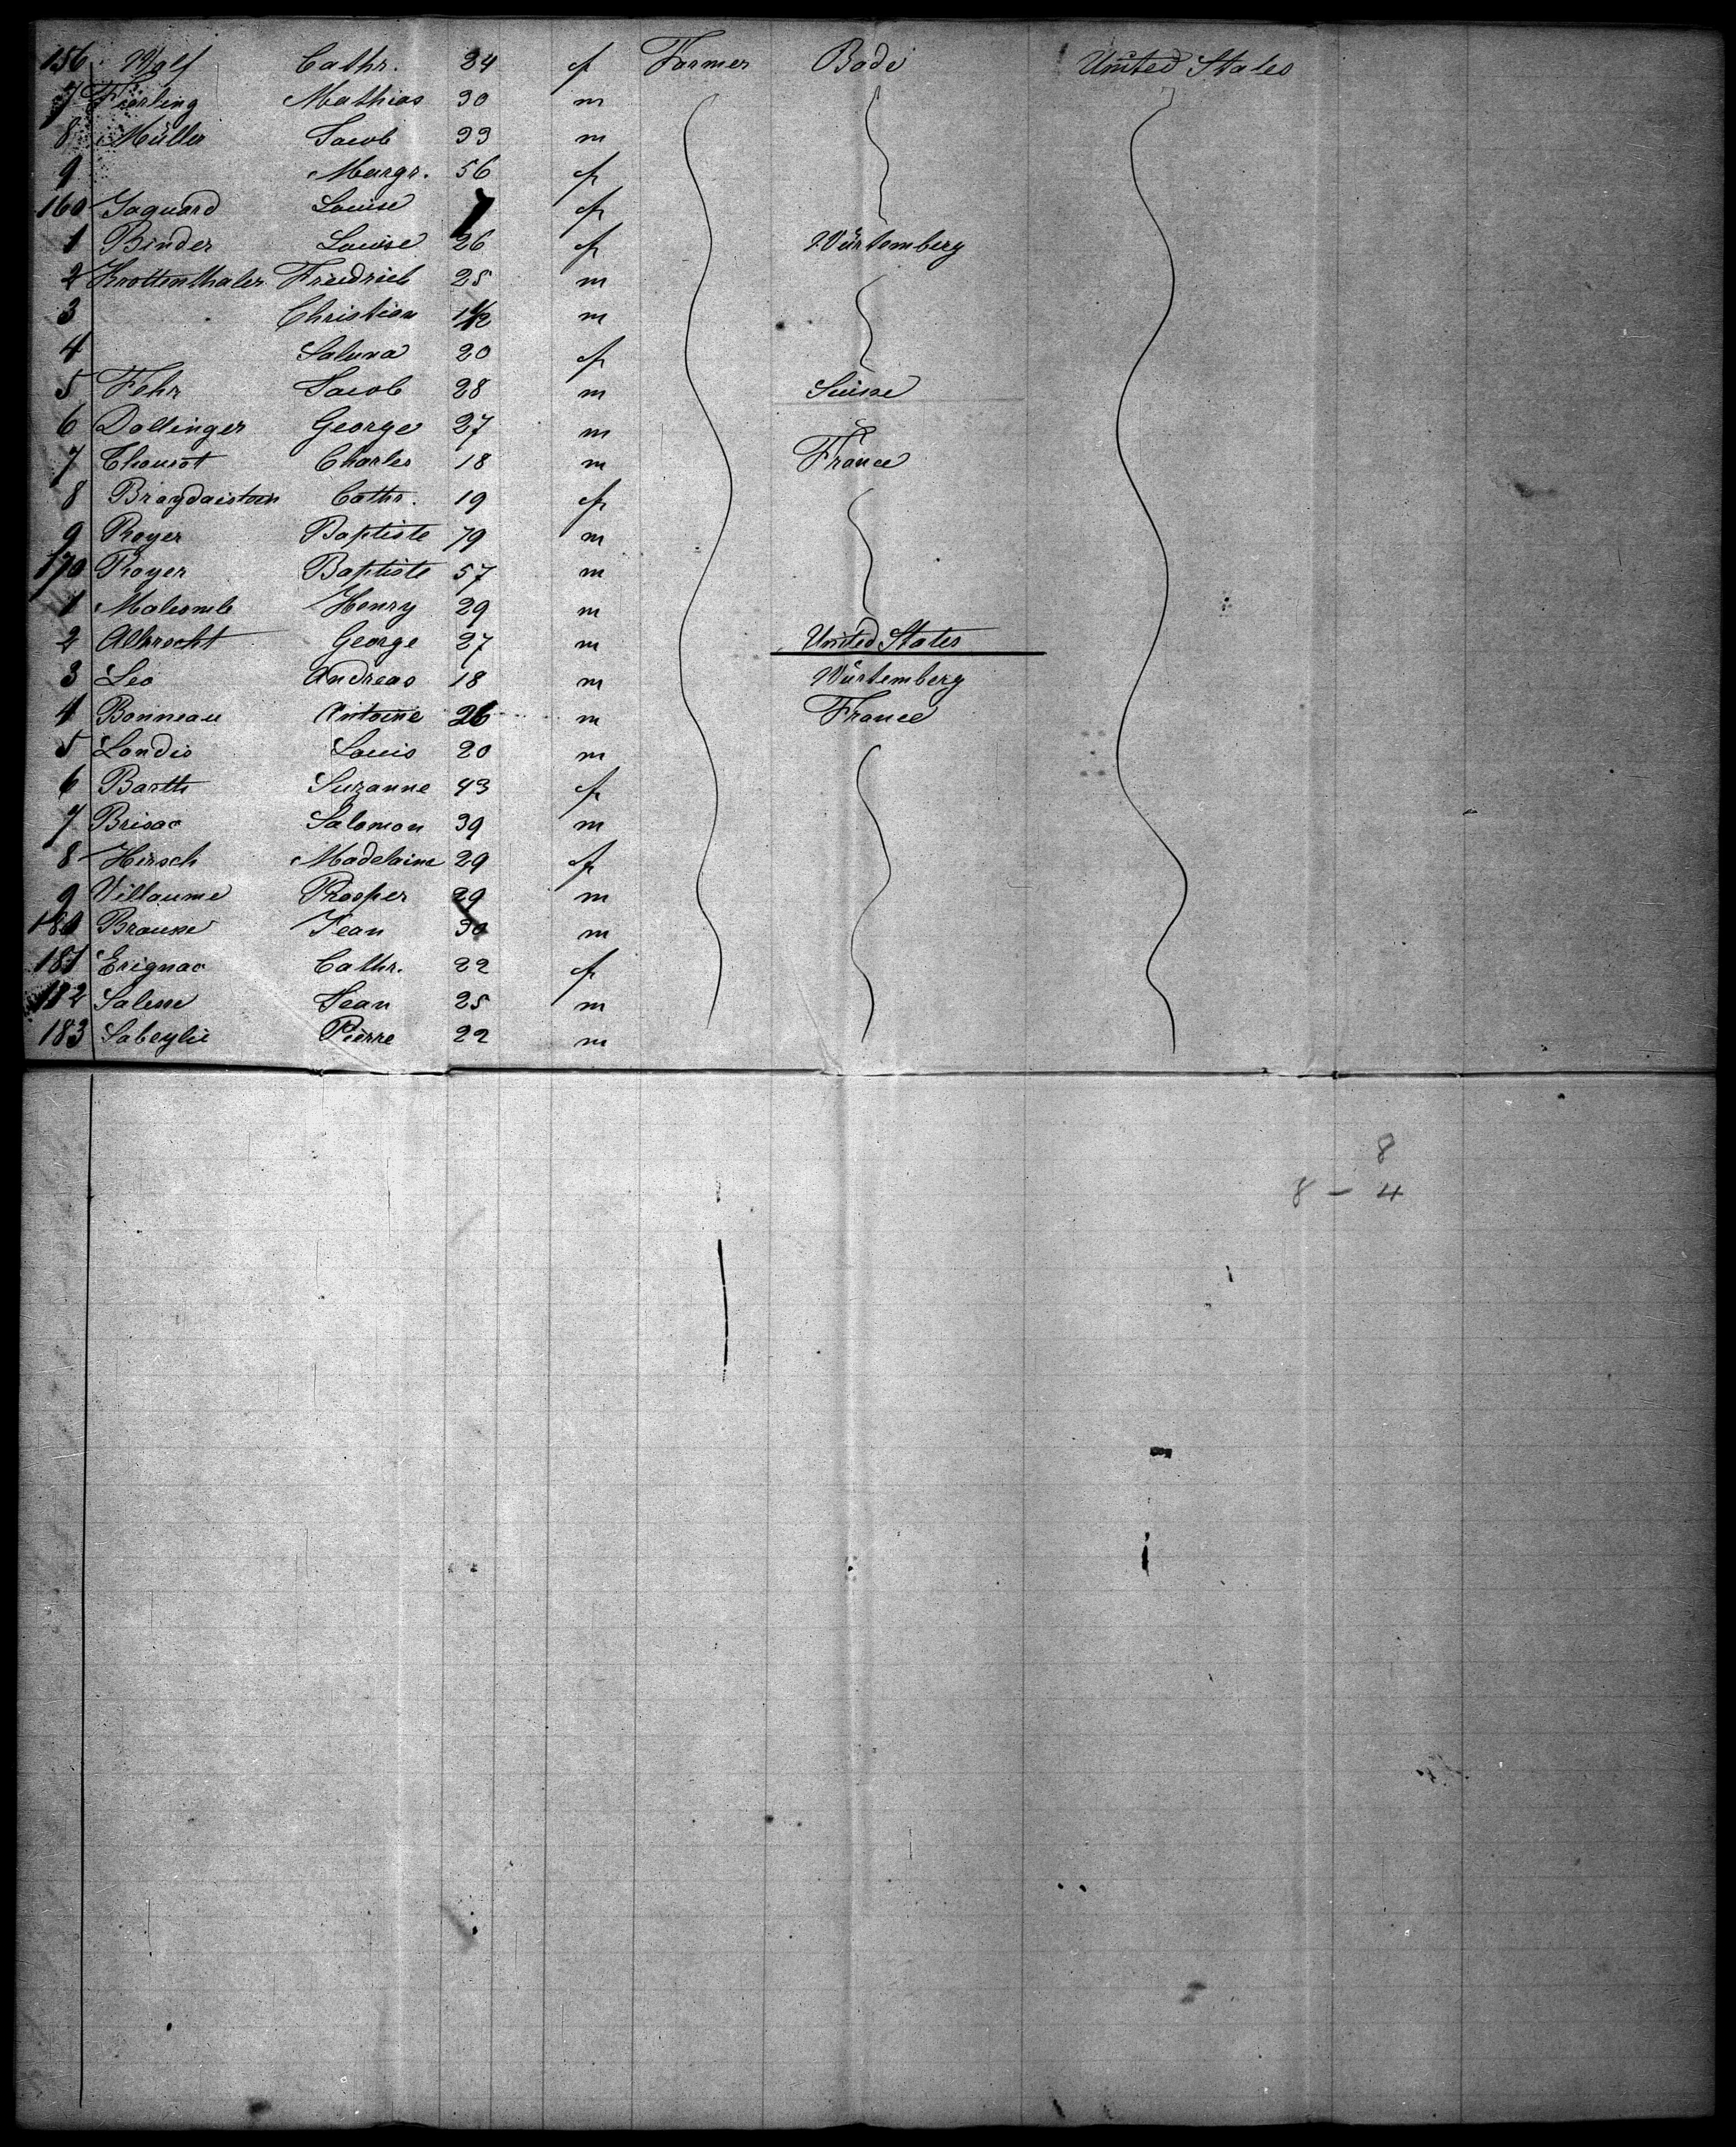 156 Wolf Cathr. 24 f Farmer Bade United States
7 Fierling Mathias 30 m
8 Müller Jacob 33 m
9 Margr. 56 f
160 Jaquard Louise 7 f
1 Binder Louise 26 f Würtemberg
2 Krottenthaler Friedrich 25 m
3 Christian 1 1/2 m
4 Saluna 20 f
5 Fehr Jacob 28 m Suisse
6 Dollinger George 27 m
7 Chourot Charles 18 m France
8 Cathr. 19 f
9 Royer Baptiste 79 m
170 Royer Baptiste 57 m
1 Henry 29 m
2 Albrecht George 27 m United States
3 Leo Andreas 18 m Würtemberg
4 Bonneau Antoine 26 m France
5 Landis Louis 20 m
6 Barth Suzanne 43 f
7 Brisac Salomon 39 m
8 Hirsch Madelaine 29 f
9 Villaume Prosper 29 m
180 Brousse Jean 30 m
181 Erignac Cathr. 22 f
182 Salesse Jean 25 m
183 Labeylie Pierre 22 m
8
8 - 4